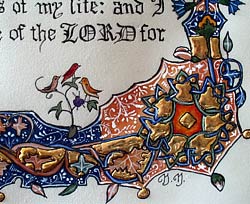 s of my life: and I
e of the LORD for